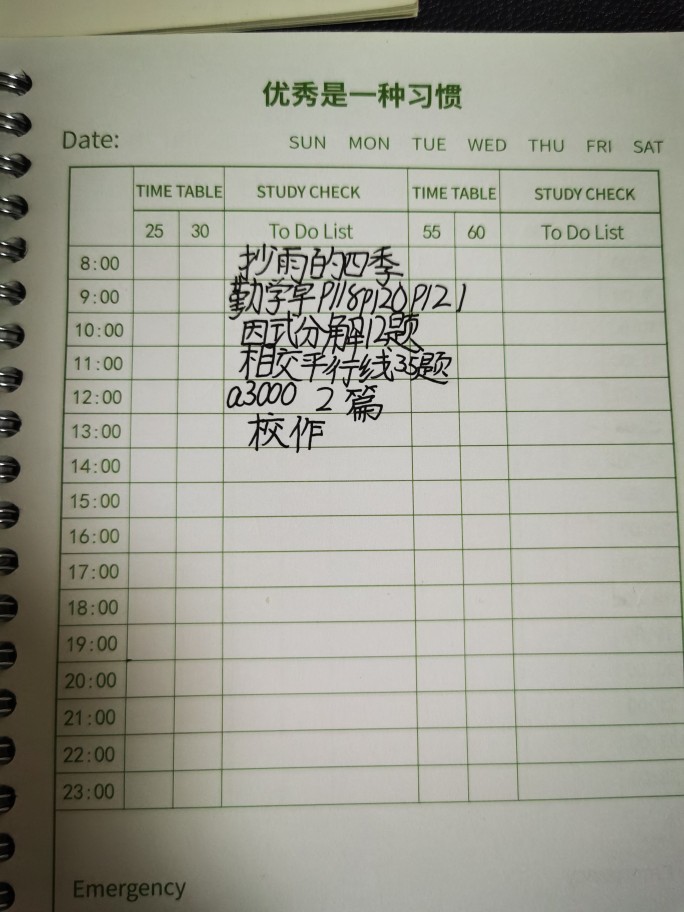 优秀是一种习惯
Date: SUN MON TUE WED THU FRI SAT
TIME TABLE STUDY CHECK TIME TABLE STUDY CHECK
25 30 To Do List 55 60 To Do List
8:00 抄雨的四季
9:00 勤学早P118P120P121
10:00 因式分解12题
11:00 相交平行线35题
12:00 a3000 2篇
13:00 校作
14:00
15:00
16:00
17:00
18:00
19:00
20:00
21:00
22:00
23:00
Emergency